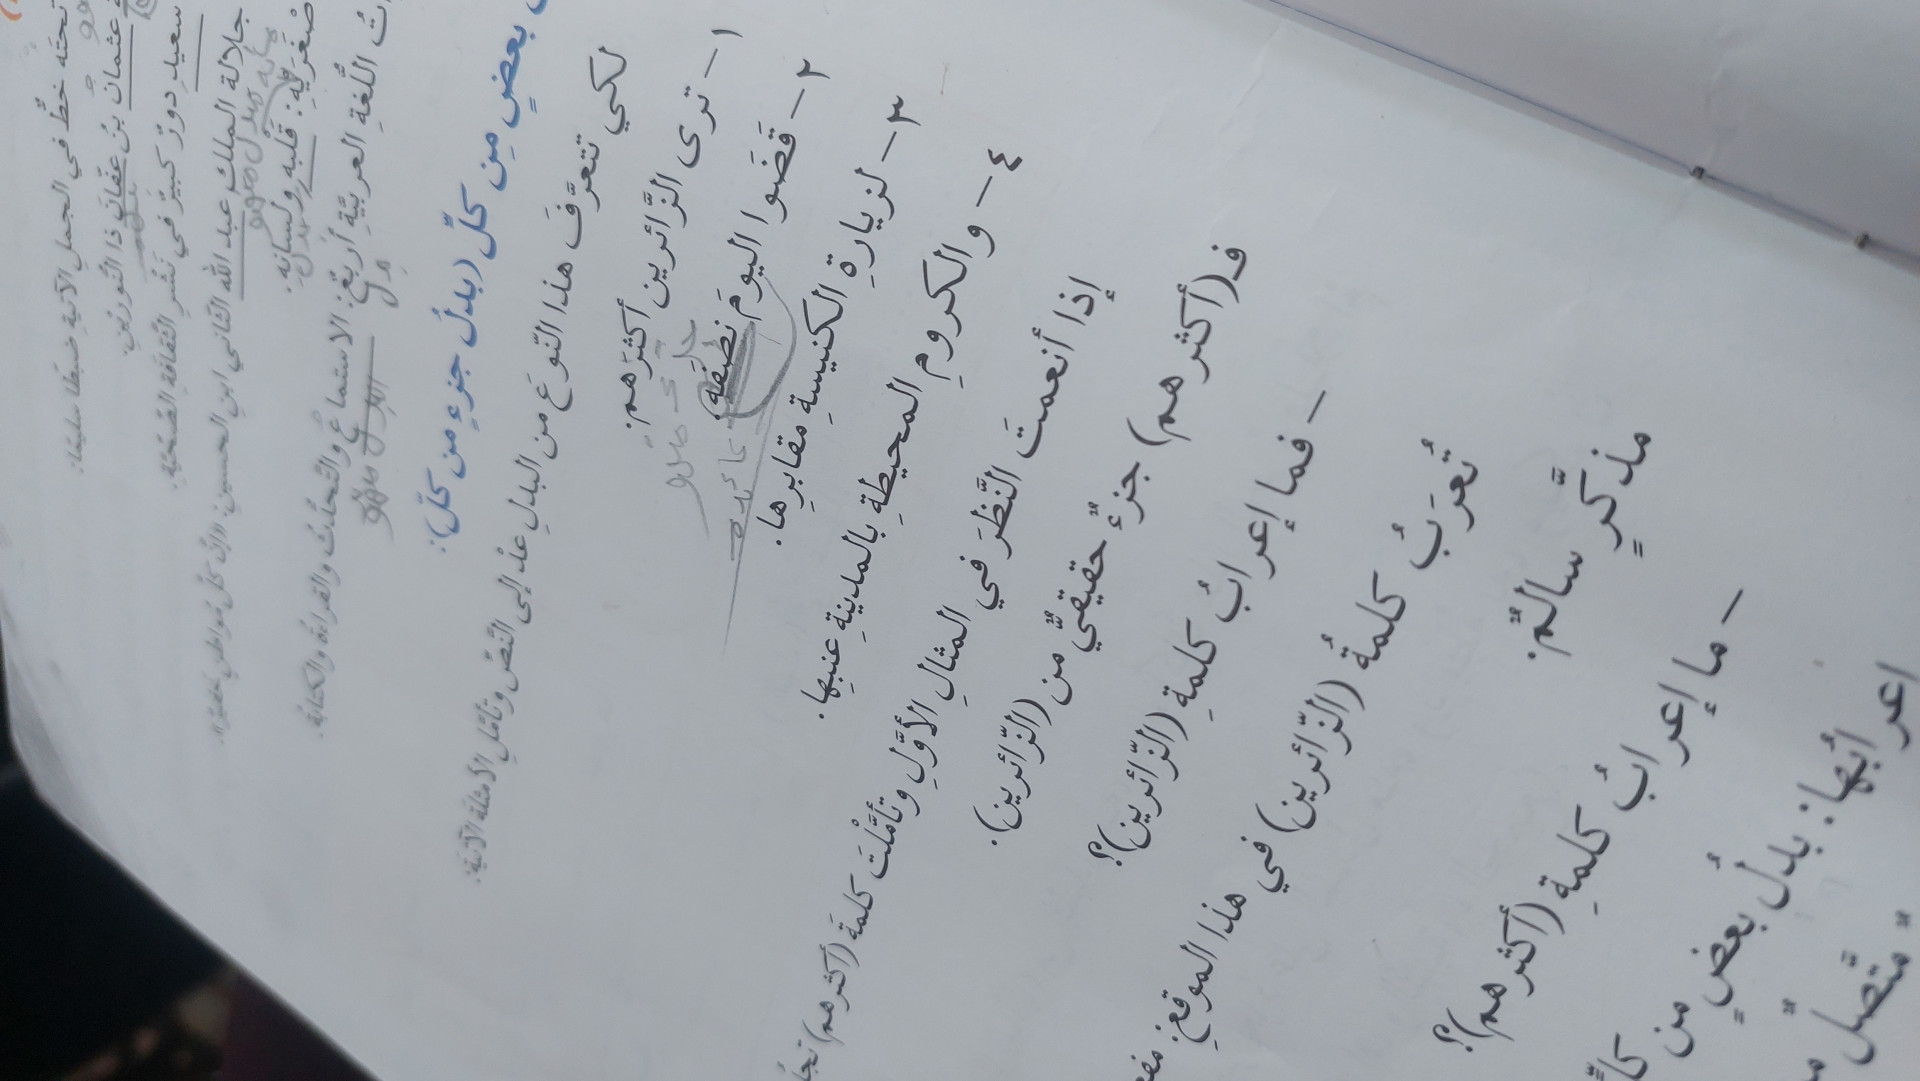 تحته خطٌّ في الجملِ الآتيةِ ضبطًا سليمًا:
عثمان بنُ عفّانَ ذا النّورينِ.
سعيدِ دورٌ كبيرٌ في نَشْرِ الثّقافةِ الصّحّيّةِ.
جلالة الملك عبد الله الثّاني ابنِ الحسينِ: "إنّ كلَّ مُواطنٍ
قلبه ولسانه.
اللُّغةِ العربيّةِ أربعٌ: الاستماعُ والتّحدّثُ والقراءةُ والكتابةُ.
بعضٍ مِن كلٍّ (بدلُ جزءٍ من كلٍّ):
لكي تتعرَّفَ هذا النّوعَ من البدلِ عدْ إلى النّصّ وتأمّلِ الأمثلةَ الآتيةَ.
١ – ترى الزّائرين أكثرَهم.
٢ – قَضَوا اليومَ نصْفَه.
٣ – لزيارةِ الكنيسةِ مقابرِها.
٤ – والكرومِ المحيطةِ بالمدينةِ عنبِها.
إذا أنعمتَ النَّظرَ في المثالِ الأوّلِ وتأمَّلْتَ كلمةَ (أكثرهم)
فـ(أكثرهم) جزءٌ حقيقيٌّ من (الزّائرين).
– فما إعرابُ كلمةِ (الزّائرين)؟
تُعرَبُ كلمةُ (الزّائرين) في هذا الموقعِ:
مذكّرٍ سالمٌ.
– ما إعرابُ كلمةِ (أكثرهم)؟
إعرابُها: بدلُ بعضٍ من
متّصلٌ